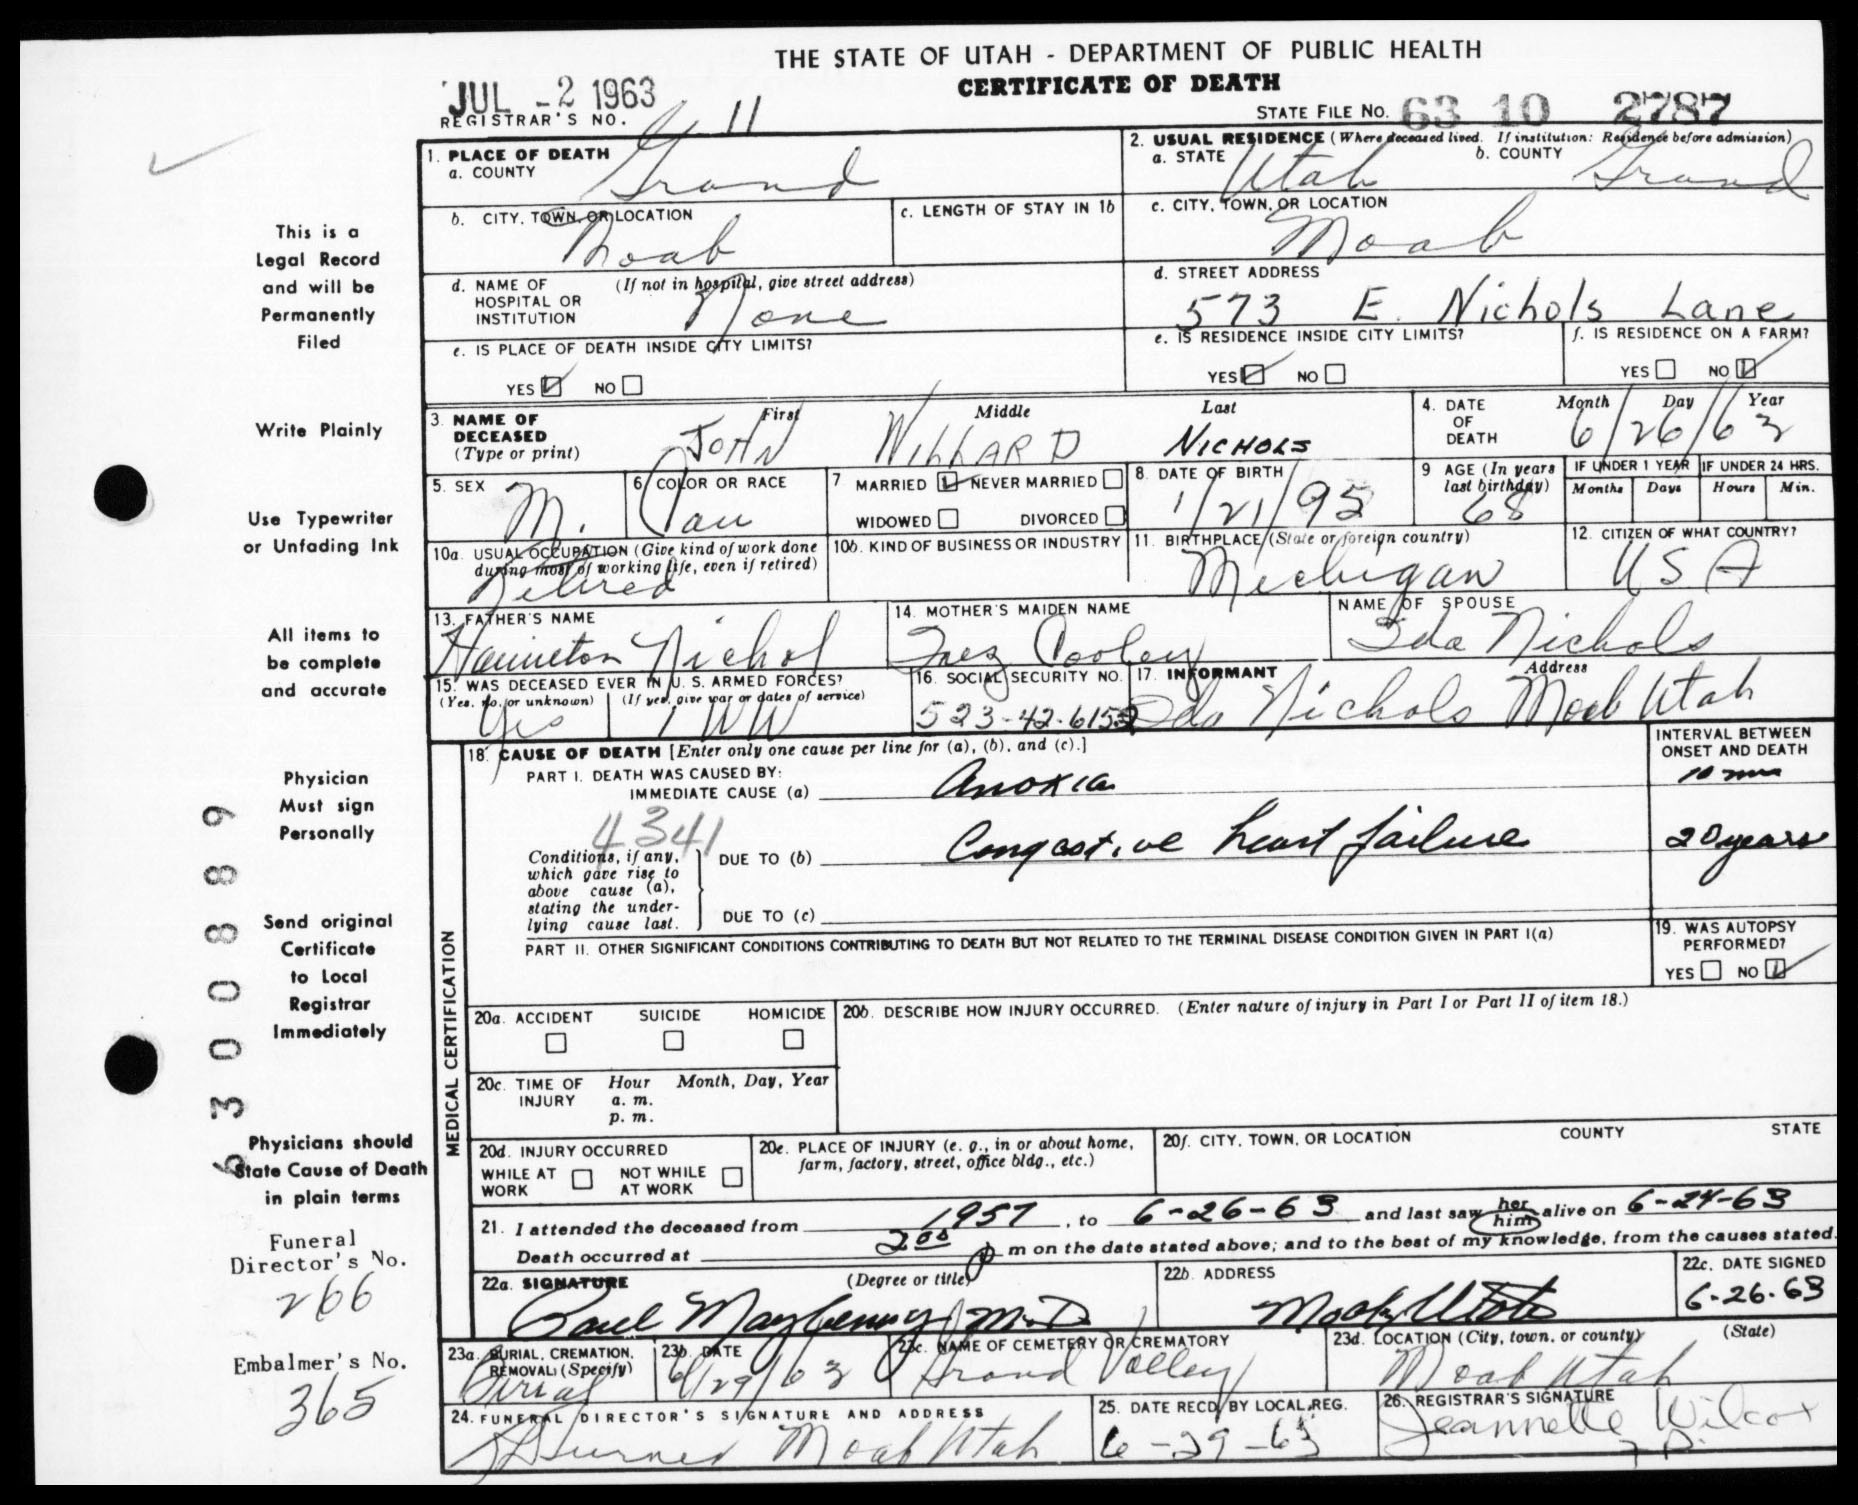 THE STATE OF UTAH - DEPARTMENT OF PUBLIC HEALTH
CERTIFICATE OF DEATH
JUL - 2 1963
REGISTRAR'S NO. 11
STATE FILE NO. 63 10 2787
1. PLACE OF DEATH
a. COUNTY Grand
2. USUAL RESIDENCE (Where deceased lived. If institution: Residence before admission)
a. STATE Utah b. COUNTY Grand
b. CITY, TOWN, OR LOCATION Moab
c. LENGTH OF STAY IN 1b
c. CITY, TOWN, OR LOCATION Moab
d. NAME OF HOSPITAL OR INSTITUTION (If not in hospital, give street address) None
d. STREET ADDRESS 573 E. Nichols Lane
e. IS PLACE OF DEATH INSIDE CITY LIMITS?
YES NO
e. IS RESIDENCE INSIDE CITY LIMITS?
YES NO
f. IS RESIDENCE ON A FARM?
YES NO
3. NAME OF DECEASED (Type or print)
First Middle Last
JOHN WILLARD NICHOLS
4. DATE OF DEATH Month Day Year
6/26/63
5. SEX M.
6. COLOR OR RACE Cau
7 MARRIED NEVER MARRIED
WIDOWED DIVORCED
8. DATE OF BIRTH 1/21/95
9 AGE (In years last birthday) 68
IF UNDER 1 YEAR Months Days
IF UNDER 24 HRS. Hours Min.
10a. USUAL OCCUPATION (Give kind of work done during most of working life, even if retired)
Retired
10b. KIND OF BUSINESS OR INDUSTRY
11. BIRTHPLACE (State or foreign country) Michigan
12. CITIZEN OF WHAT COUNTRY? USA
13. FATHER'S NAME Nichol
14. MOTHER'S MAIDEN NAME Inez Cooley
NAME OF SPOUSE Ida Nichols
15. WAS DECEASED EVER IN U. S. ARMED FORCES?
(Yes, no, or unknown) (If yes, give war or dates of service)
Yes 1 WW
16. SOCIAL SECURITY NO. 523-42-6152
17. INFORMANT Address
Ida Nichols Moab Utah
MEDICAL CERTIFICATION
18. CAUSE OF DEATH [Enter only one cause per line for (a), (b), and (c).]
INTERVAL BETWEEN ONSET AND DEATH
PART I. DEATH WAS CAUSED BY:
IMMEDIATE CAUSE (a) Anoxia 10 min
4341
Conditions, if any, which gave rise to above cause (a), stating the underlying cause last.
DUE TO (b) Congestive heart failure 20 years
DUE TO (c)
PART II. OTHER SIGNIFICANT CONDITIONS CONTRIBUTING TO DEATH BUT NOT RELATED TO THE TERMINAL DISEASE CONDITION GIVEN IN PART I(a)
19. WAS AUTOPSY PERFORMED?
YES NO
20a. ACCIDENT SUICIDE HOMICIDE
20b. DESCRIBE HOW INJURY OCCURRED. (Enter nature of injury in Part I or Part II of item 18.)
20c. TIME OF INJURY Hour Month, Day, Year
a. m.
p. m.
20d. INJURY OCCURRED
WHILE AT WORK NOT WHILE AT WORK
20e. PLACE OF INJURY (e. g., in or about home, farm, factory, street, office bldg., etc.)
20f. CITY, TOWN, OR LOCATION COUNTY STATE
21. I attended the deceased from 1957, to 6-26-63 and last saw her him alive on 6-24-63
Death occurred at 2 00 p m on the date stated above; and to the best of my knowledge, from the causes stated.
22a. SIGNATURE (Degree or title)
Paul Mayberry M.D.
22b. ADDRESS Moab, Utah
22c. DATE SIGNED 6-26-63
23a. BURIAL, CREMATION, REMOVAL (Specify) Burial
23b. DATE 6/29/63
23c. NAME OF CEMETERY OR CREMATORY Grand Valley
23d. LOCATION (City, town, or county) (State)
Moab Utah
24. FUNERAL DIRECTOR'S SIGNATURE AND ADDRESS
Moab Utah
25. DATE RECD. BY LOCAL REG. 6-29-63
26. REGISTRAR'S SIGNATURE
Jeannette Wilcox
This is a
Legal Record
and will be
Permanently
Filed
Write Plainly
Use Typewriter
or Unfading Ink
All items to
be complete
and accurate
Physician
Must sign
Personally
Send original
Certificate
to Local
Registrar
Immediately
Physicians should
State Cause of Death
in plain terms
6300889
Funeral
Director's No.
266
Embalmer's No.
365